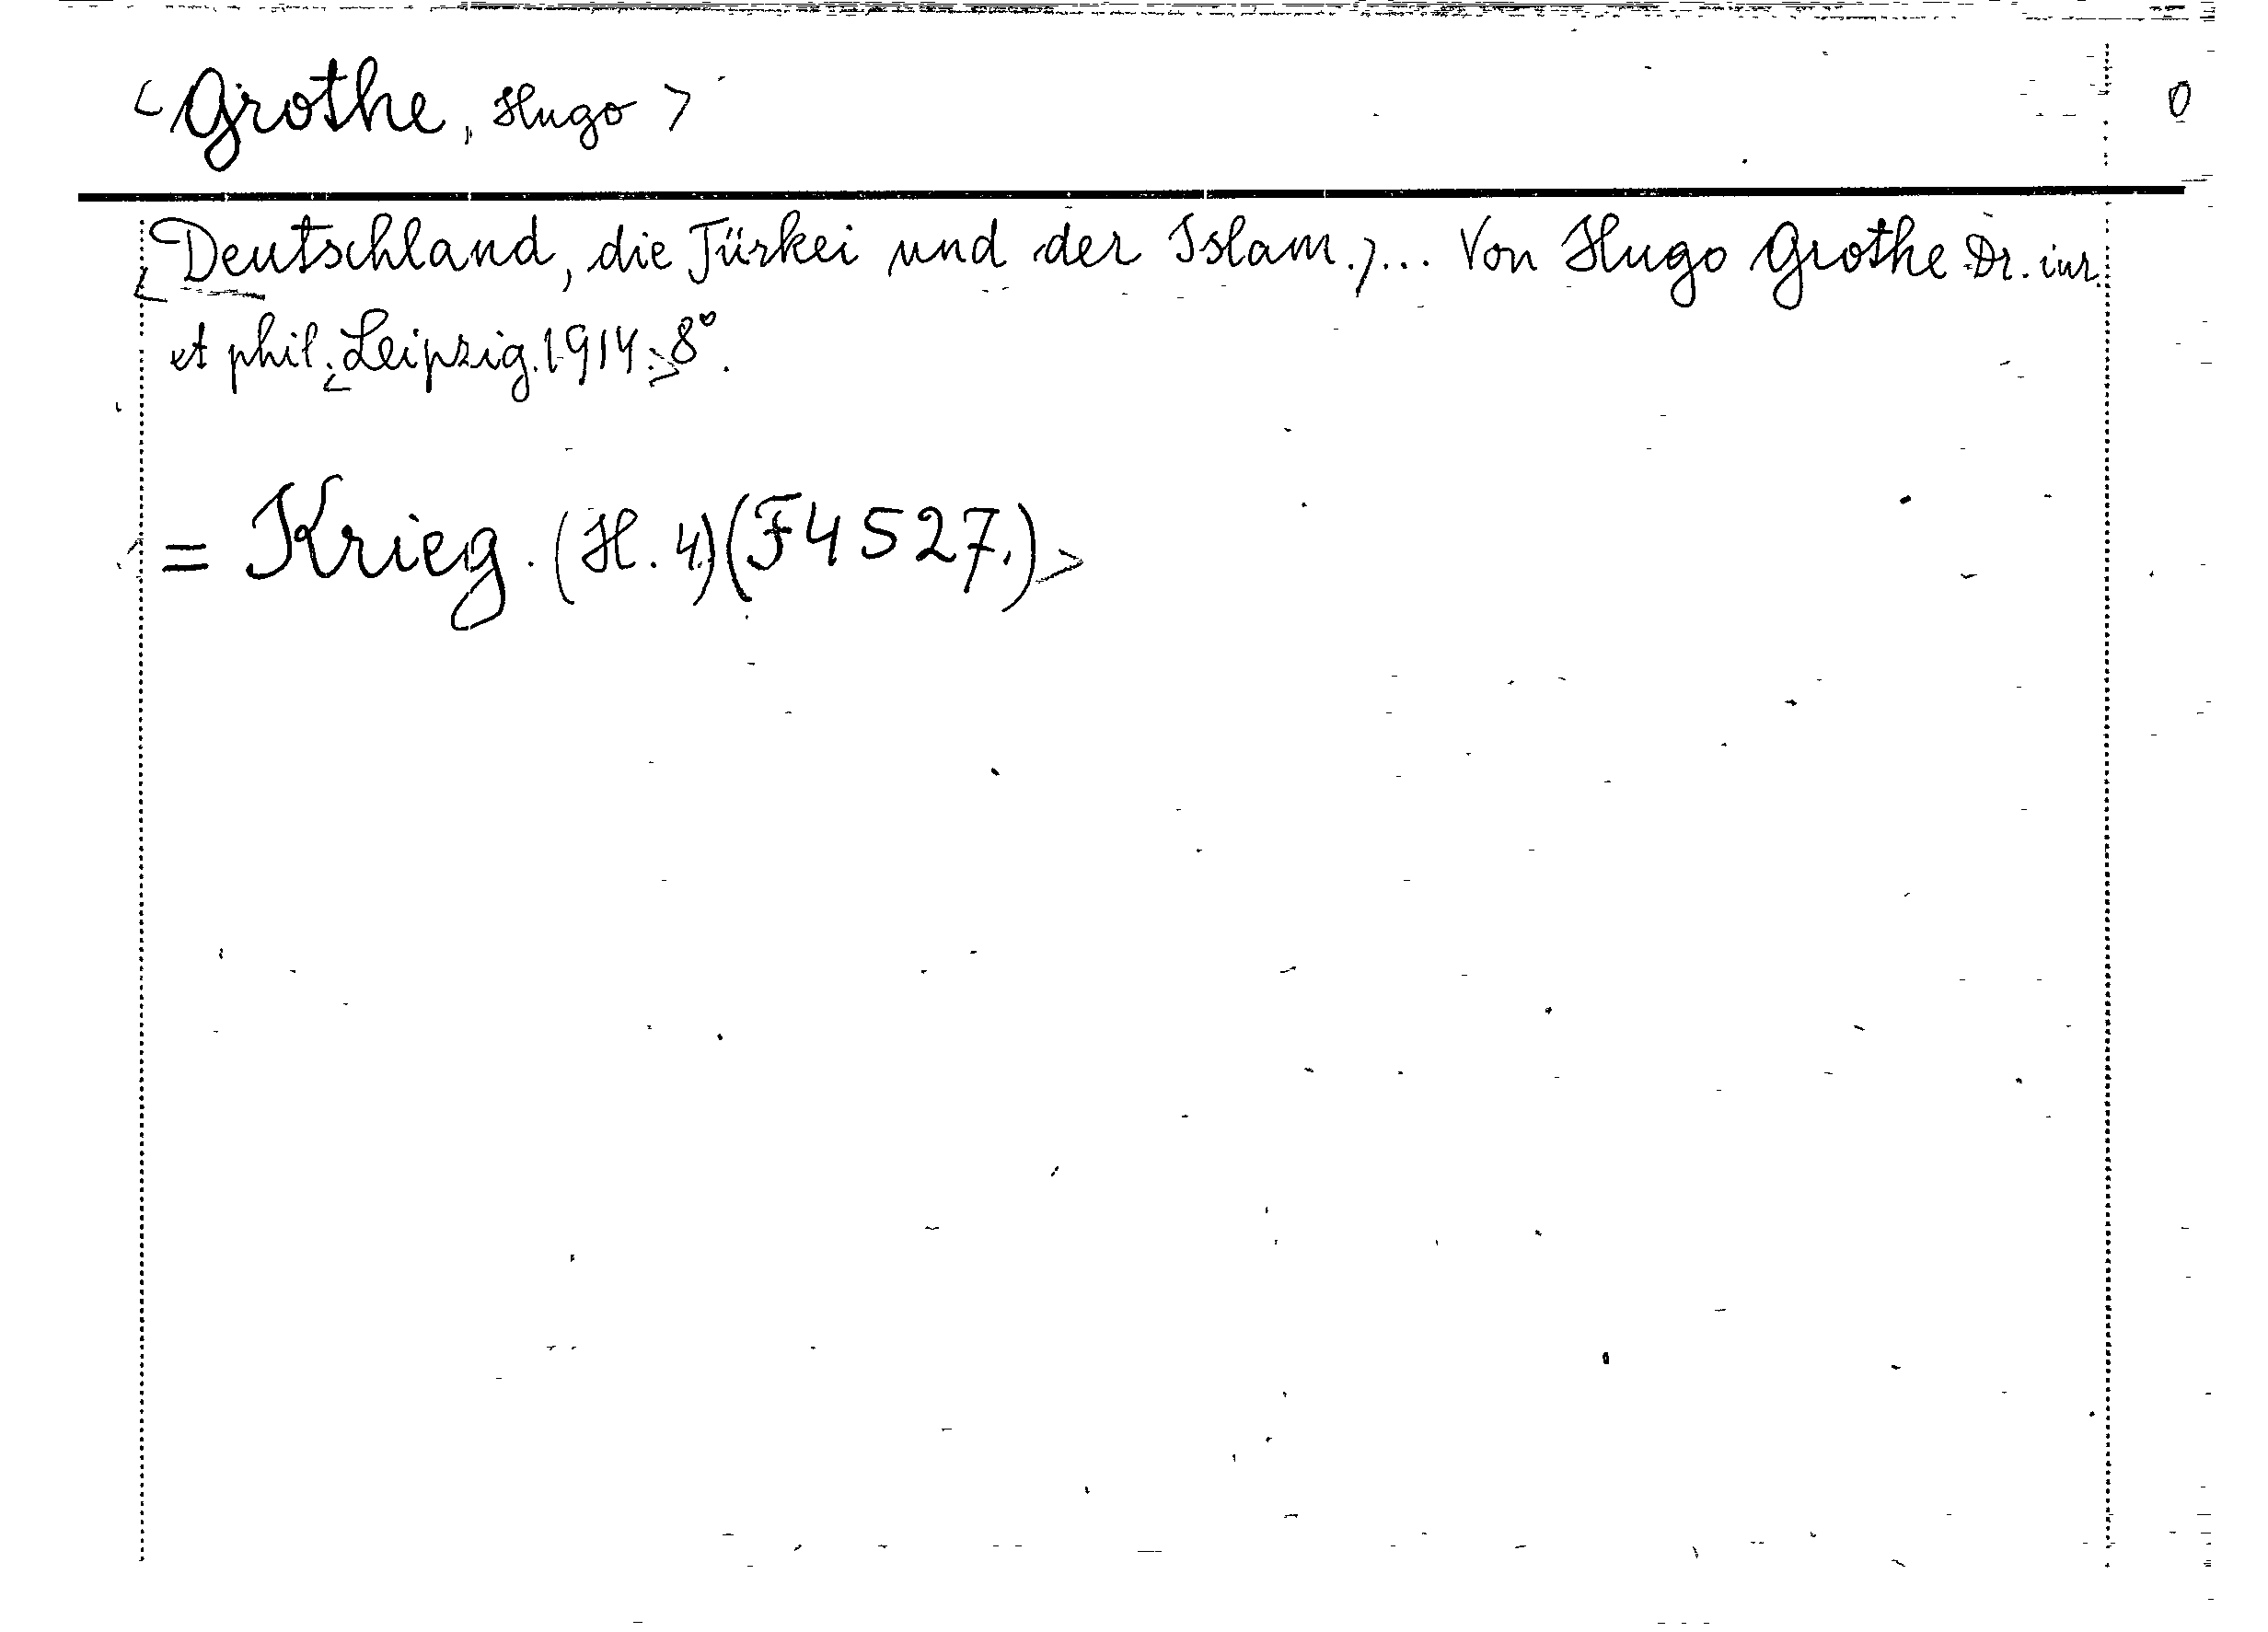 <Grothe, Hugo> 0
<Deutschland, die Türkei und der Islam.>... Von Hugo Grothe Dr. iur.
et phil. <Leipzig. 1914.> 8°.
= Krieg. (H. 4.) (F4527.)>